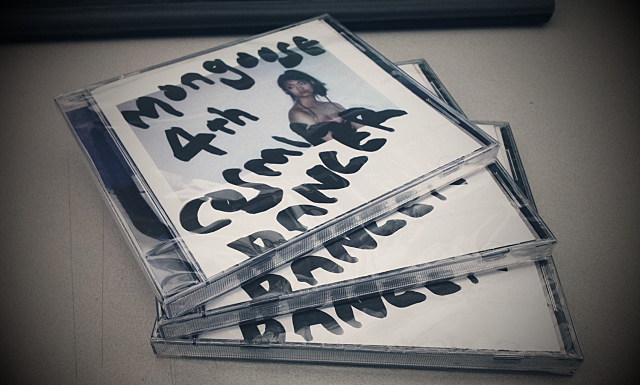 mongoose
4th
COSMIC
DANCER
DANCER
DANCER